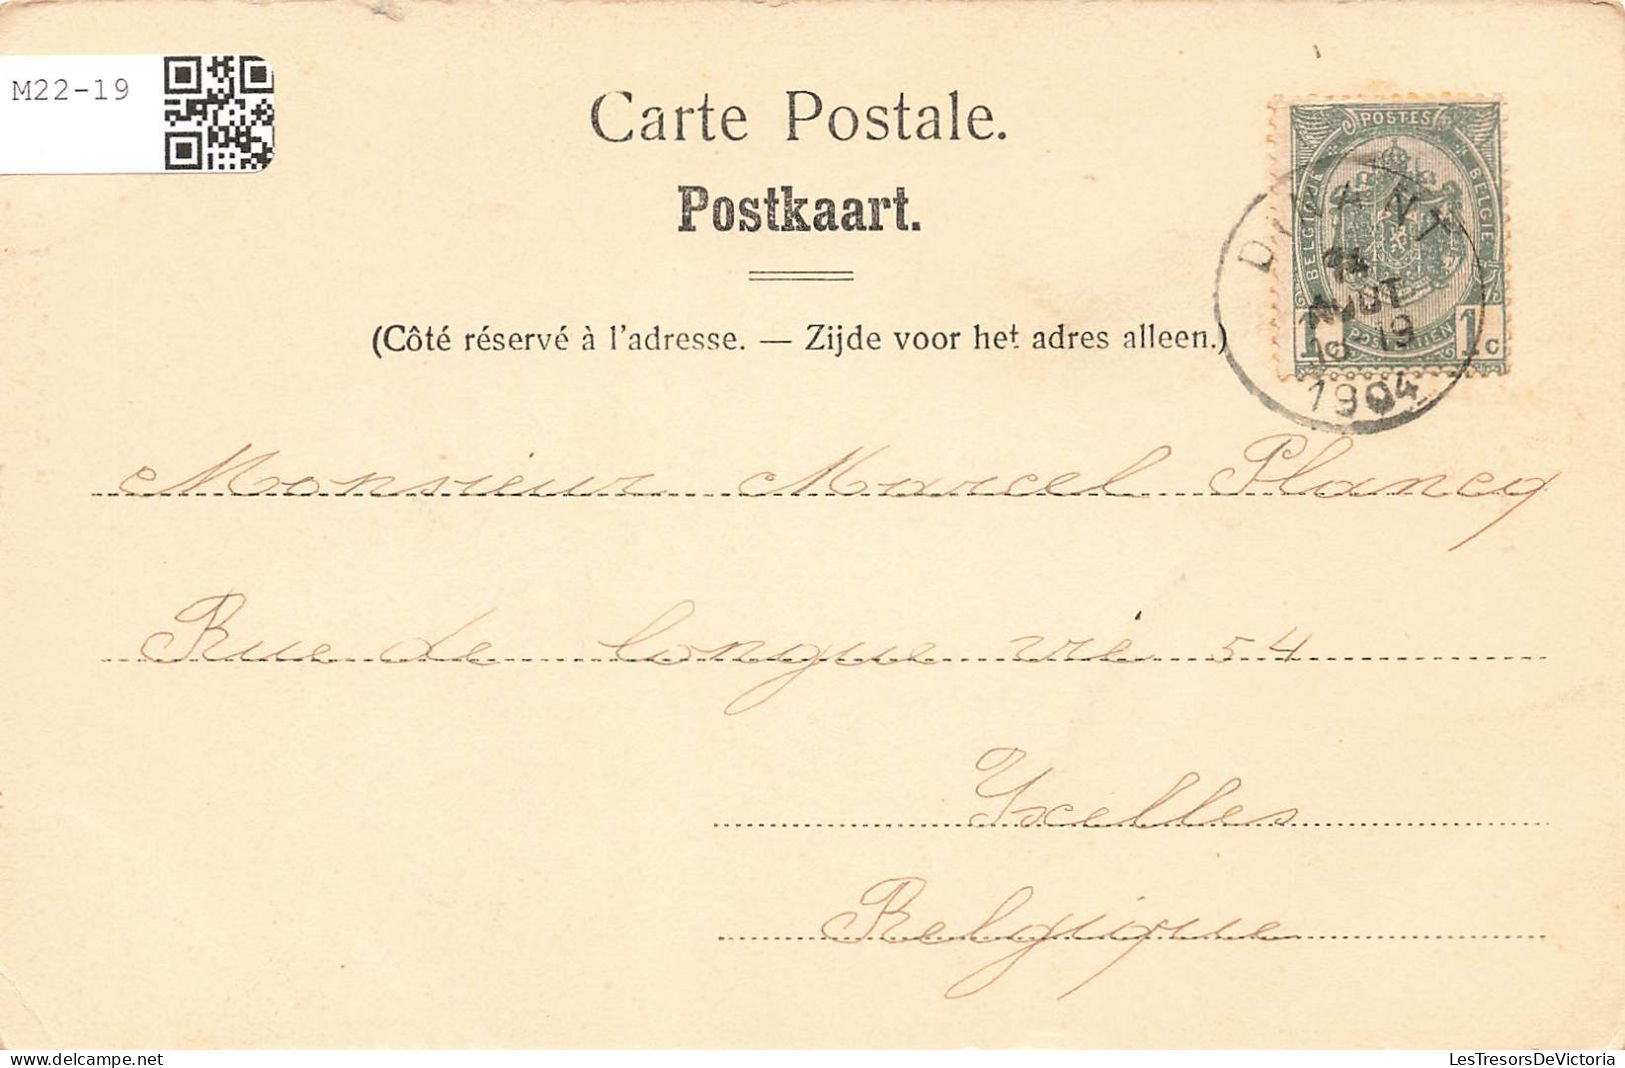 M22-19
Carte Postale.
Postkaart.
(Côté réservé à l'adresse. — Zijde voor het adres alleen.)
POSTES
BELGIQUE BELGIE
POSTERIJEN
1 1c
DINANT
AOUT
19
1904
Monsieur Marcel Plancq
Rue de longue vie 54
Ixelles
Belgique
delcampe.net
LesTresorsDeVictoria